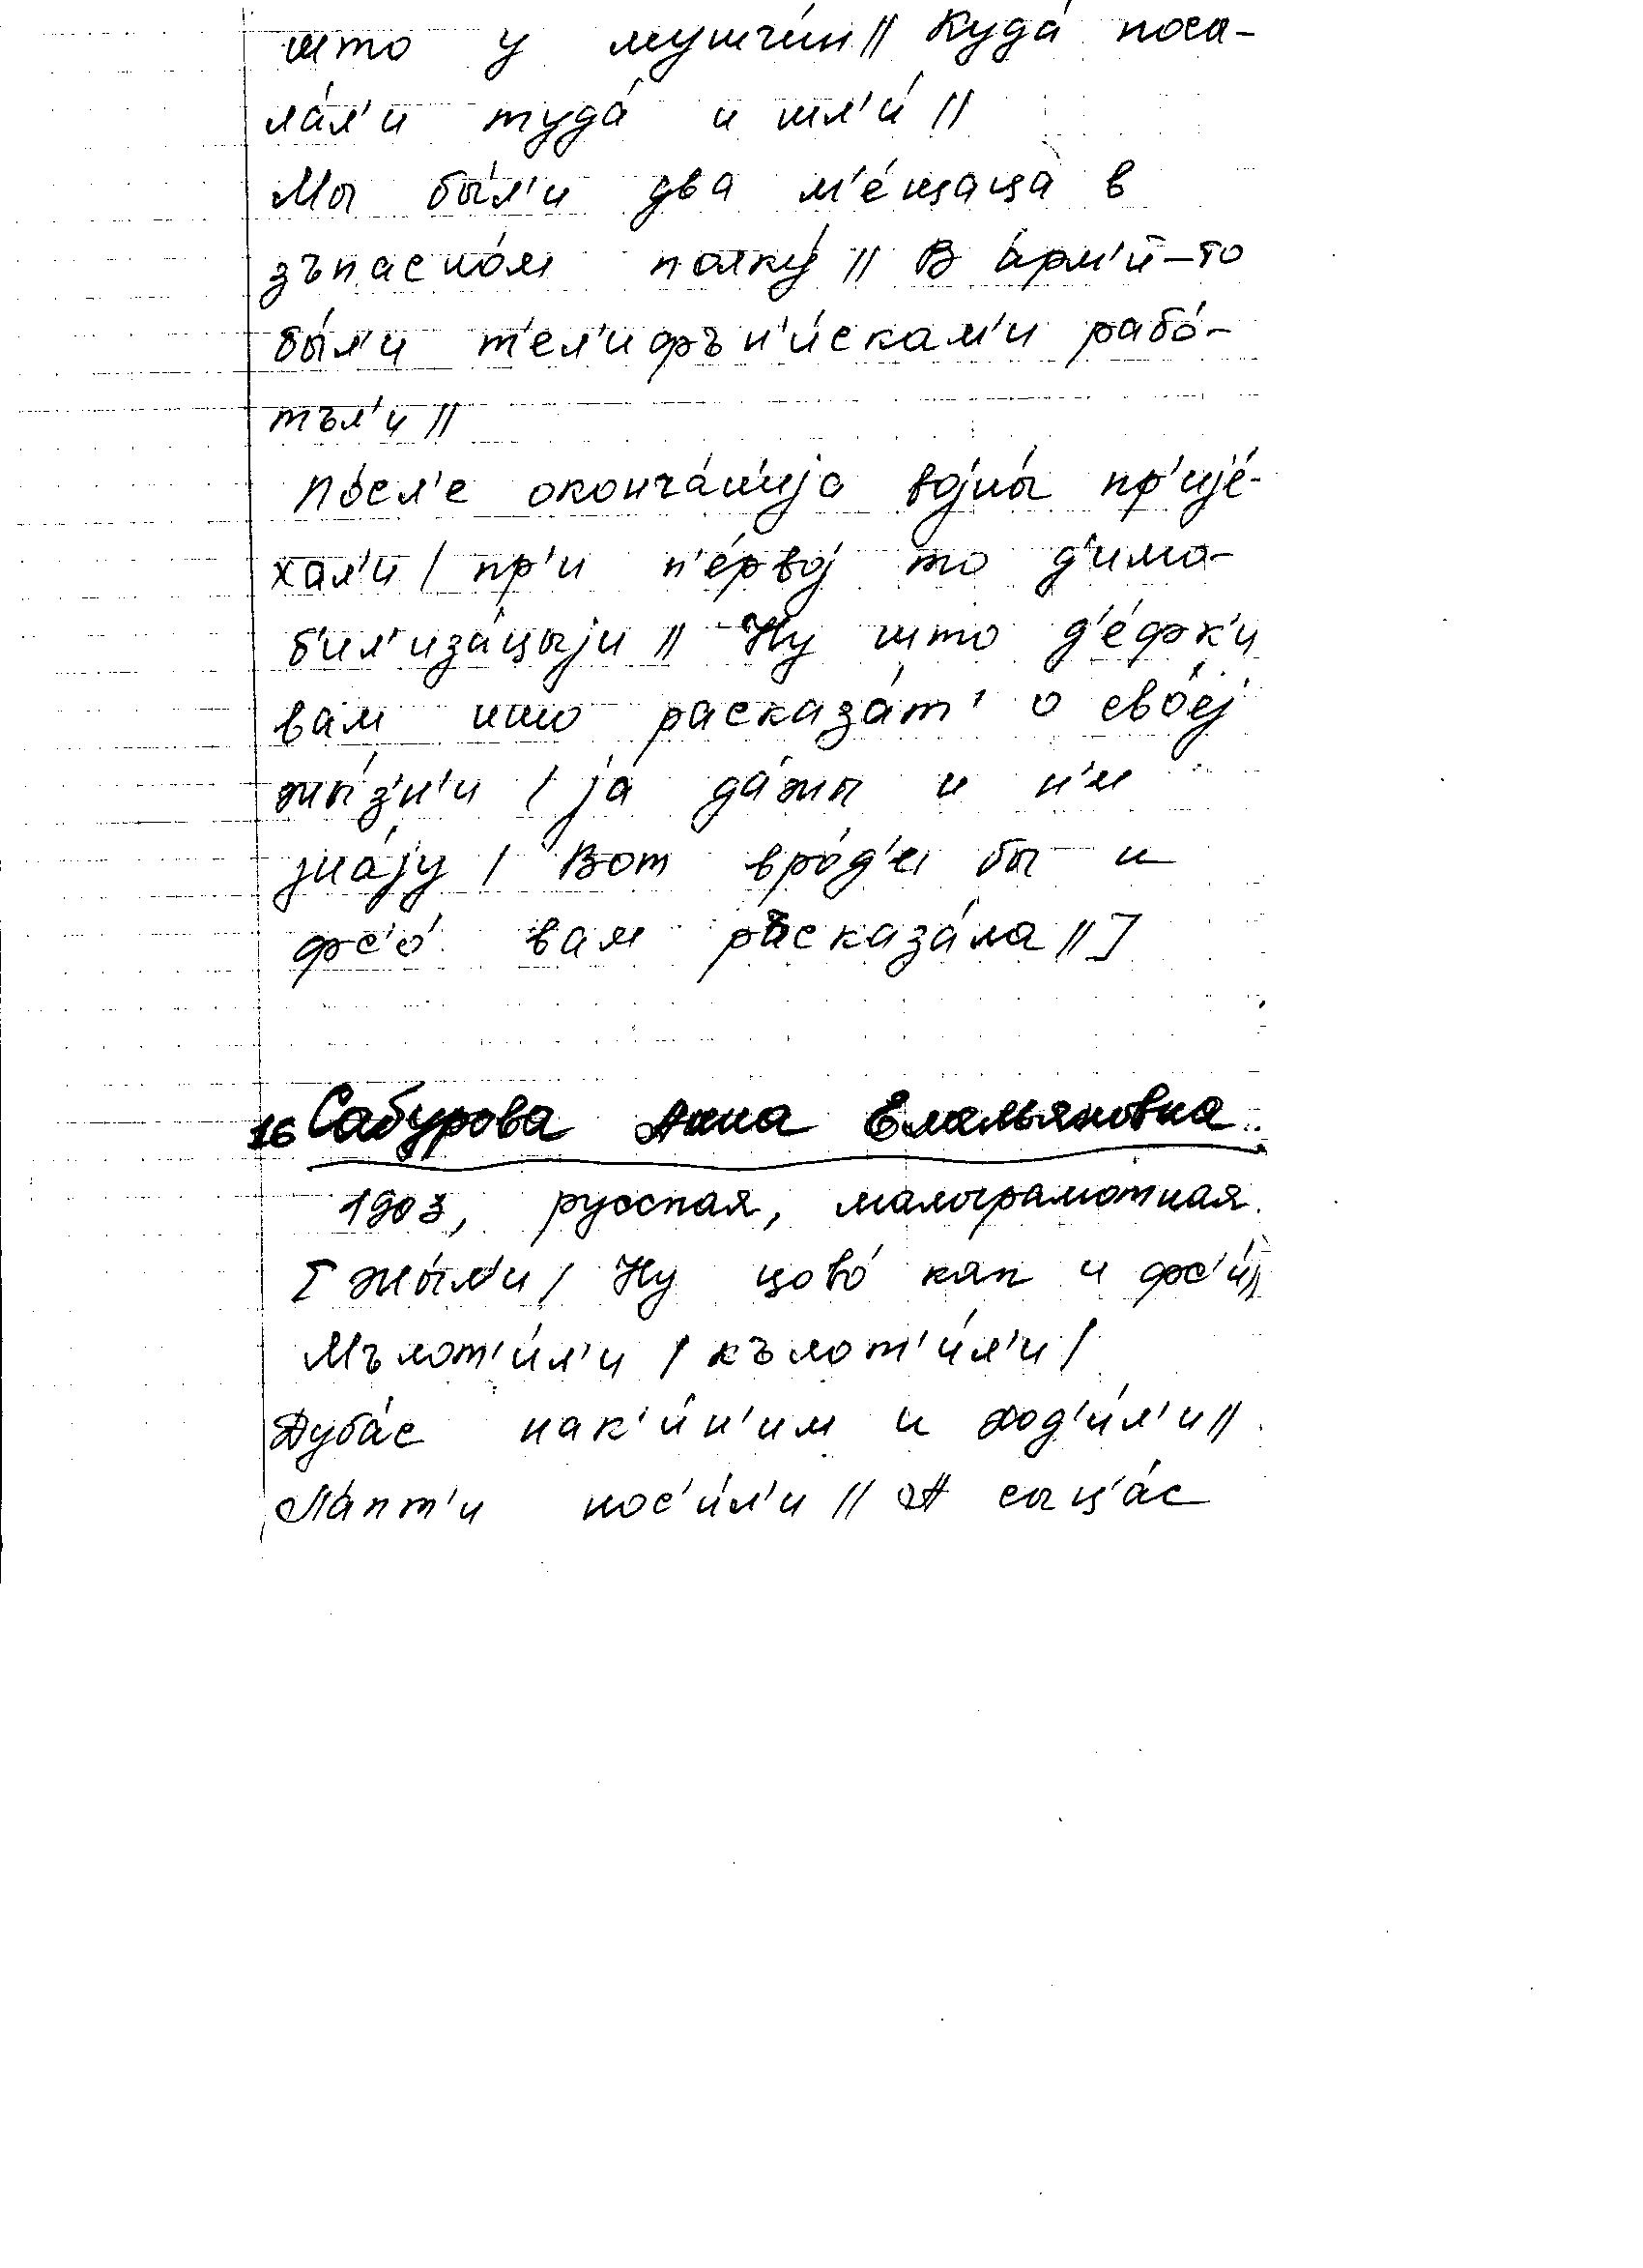 што у мушчи́н // Куда́ поса-
ла́л'и туда́ и шл'и́ //
Мы бы́л'и два м'е́щаца в
зъпасно́м полку́ // В а́рм'и-то
бы́л'и т'ел'ифън'и́скам'и рабо́-
тъл'и //
По́сл'е оконча́н'иjа воjны́ пр'иjе́-
хал'и / пр'и п'е́рвоj то д'имо-
б'ил'иза́цыjи // Ну што д'е́фк'и
вам ишо расказа́т' о свое́j
жы́з'н'и / jа да́жы и н'и
зна́jу / Вот вро́д'е бы и
фс'о́ вам расказа́ла // ]
16 Сабурова Анна Емельяновна
1903, русская, малограмотная.
[ жы́л'и / Ну цово́ как и фс'и́ //
Мълот'и́л'и / кълот'и́л'и /
Дуба́с нак'и́н'им и ход'и́л'и //
Ла́пт'и нос'и́л'и // А сыц'а́с